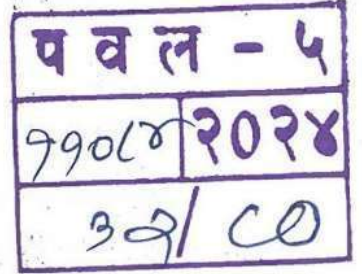 प व ल - ५
११०८४ २०२४
३२/८०